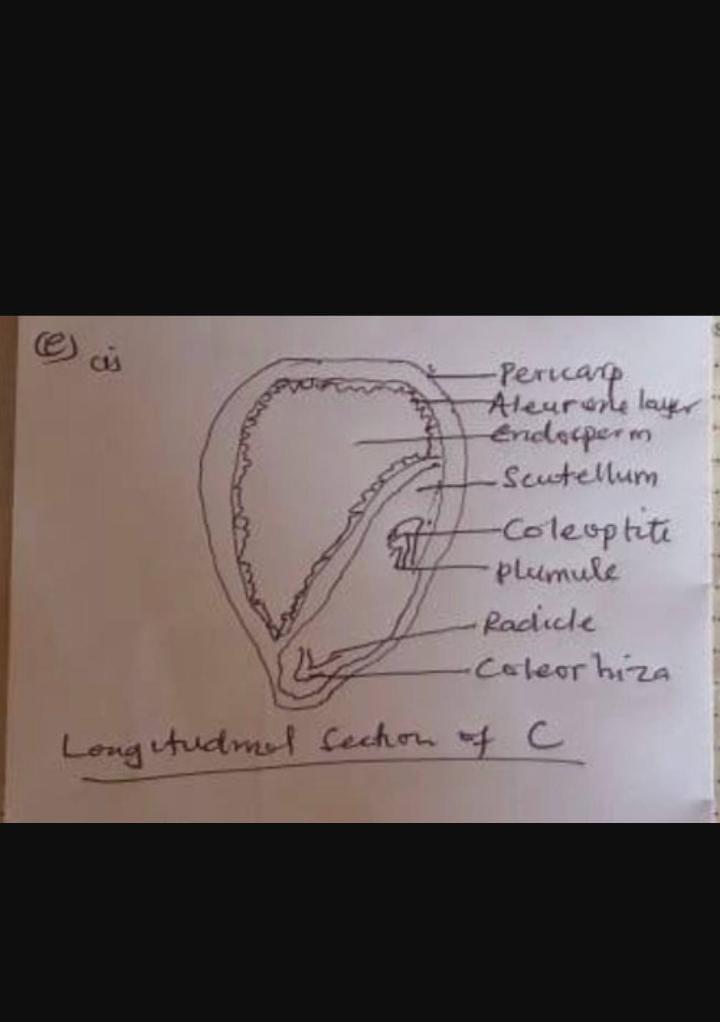 (e) cis
Pericarp
Aleurone layer
Endosperm
Scutellum
Coleoptite
plumule
Radicle
Coleorhiza
Longitudinal Section of C